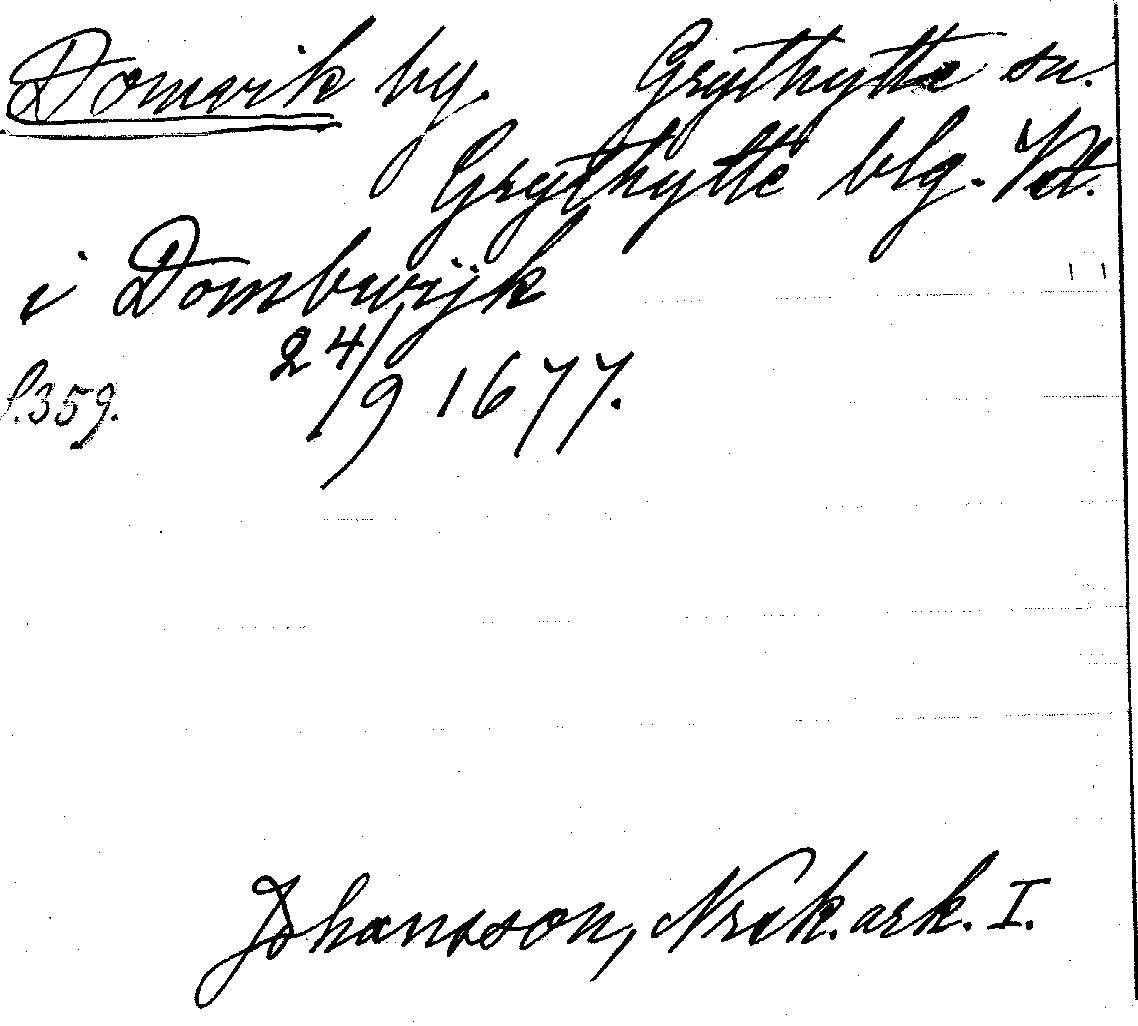 Domvik by. Grythytte sn.
Grythytte blg. Vstm.
i Dombwijk
24/9 1677.
S. 359.
Johansson, Nrik. ark. I.